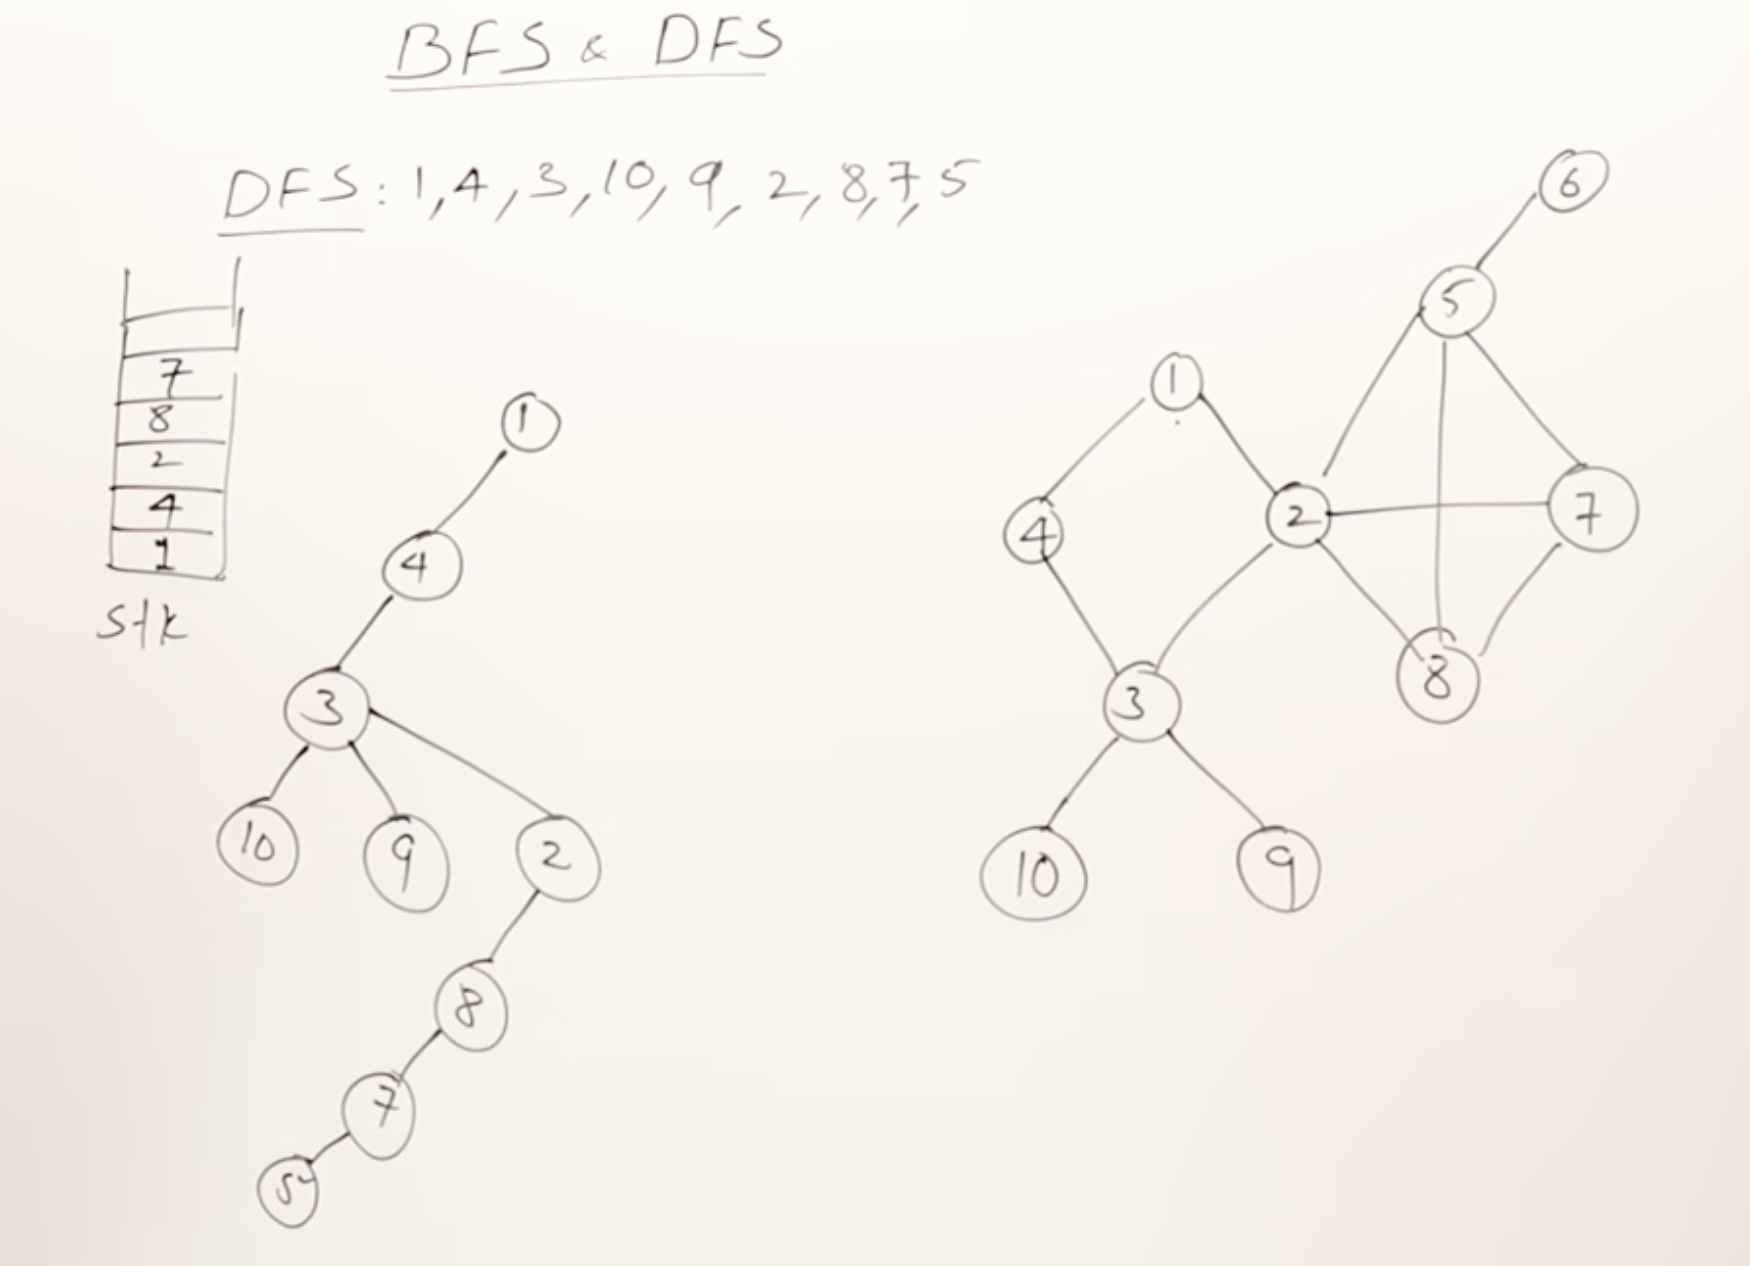 BFS & DFS
DFS: 1, 4, 3, 10, 9, 2, 8, 7, 5
7
8
2
4
1
stk
1
4
3
10
9
2
8
7
5
6
5
1
2
7
4
8
3
10
9